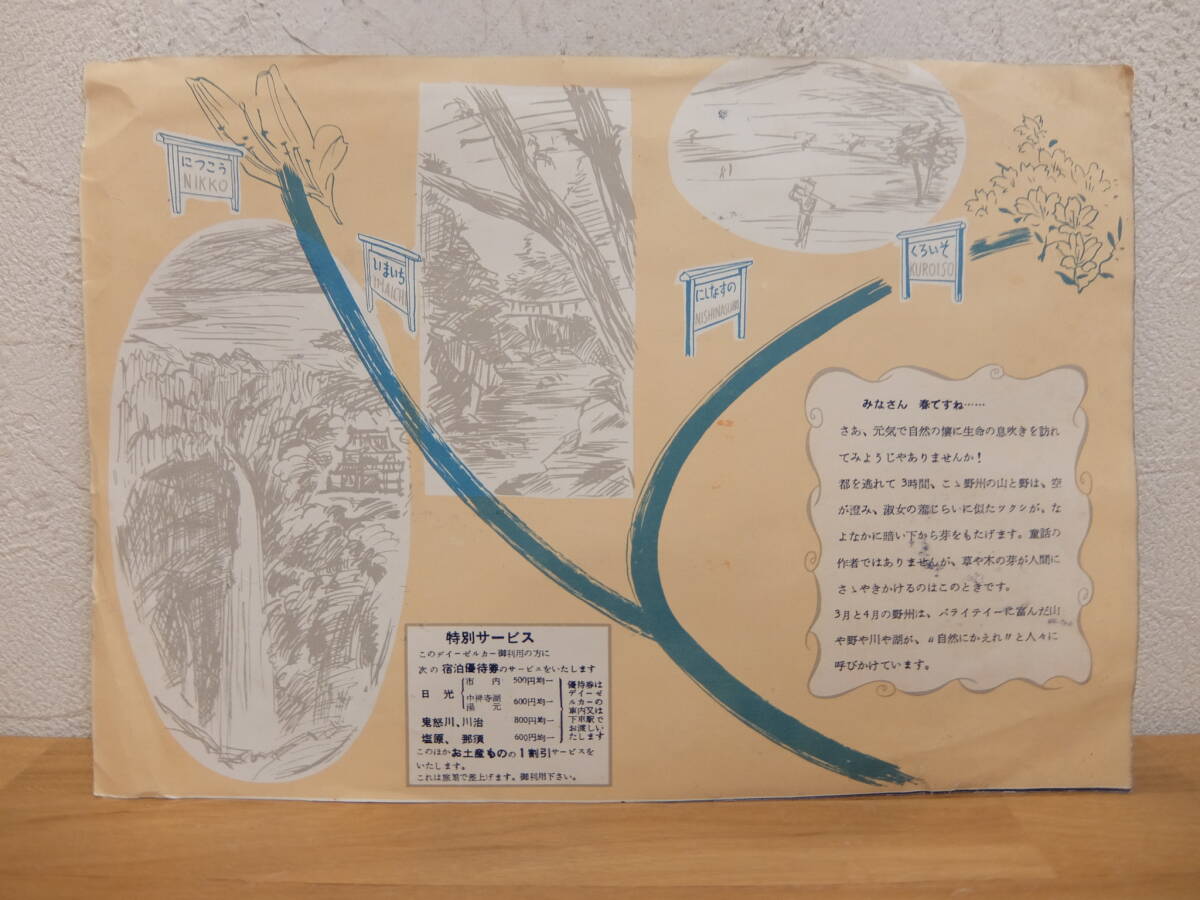 にっこう
NIKKO
いまいち
IMAICHI
にしなすの
NISHINASUNO
くろいそ
KUROISO
みなさん 春ですね……
さあ、元気で自然の懐に生命の息吹きを訪れ
てみようじやありませんか!
都を逃れて3時間、こゝ野州の山と野は、空
が澄み、淑女の羞じらいに似たツクシが、な
よなかに暗い下から芽をもたげます。童話の
作者ではありませんが、草や木の芽が人間に
さゝやきかけるのはこのときです。
3月と4月の野州は、バライテイーに富んだ山
や野や川や湖が、〃自然にかえれ〃と人々に
呼びかけています。
特別サービス
このデイーゼルカー御利用の方に
次の宿泊優待券のサービスをいたします
日光 市内 500円均一
中禅寺湖 湯元 600円均一
鬼怒川、川治 800円均一
塩原、那須 600円均一
優待券は
デイーゼ
ルカーの
車内又は
下車駅で
お渡しい
たします
このほかお土産ものの1割引サービスを
いたします。
これは旅館で差上げます。御利用下さい。